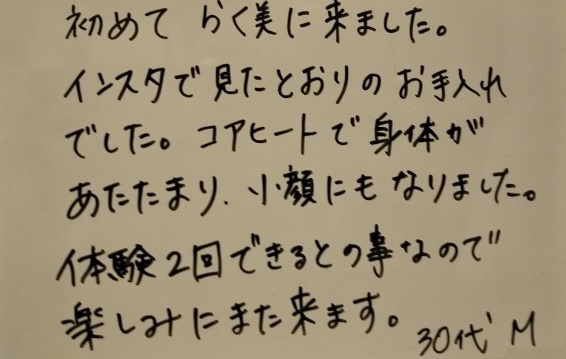 初めて らく美に来ました。
インスタで見たとおりのお手入れ
でした。コアヒートで身体が
あたたまり、小顔にもなりました。
体験2回できるとの事なので
楽しみにまた来ます。
30代 M